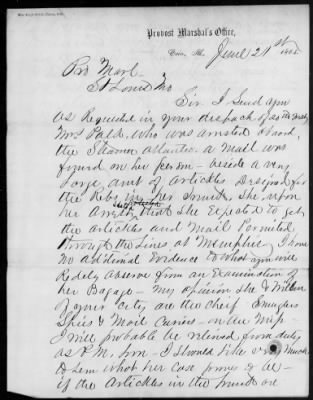 Provost Marshal's Office,
Cairo, Ills. June 21st 186
Pro Marl.
St Louis Mo
Sir. I Send you
as Requested in your despach of
Mrs Pald. who was arrested aboard
the Steamer Atlantic. a Mail was
found on her person - beside a very
Large amt of Artickles Designed for
the Rebs in her Trunk. She upon
her arrest Stated that She Expected to get
the artickles and Mail Permited
through the Lines at Memphis I have
no additional Evidence to what you will
Redely observe from an Examination of
her Bagage - My opinion She &
of your City are the Cheif Smuglers
Spies & Mail Cariers - on the Misp -
I will probable be relieved from duty
as P.M. Soon - I Should like very Much
to Learn what her case proves to be -
if the Artickles in the Trunk are